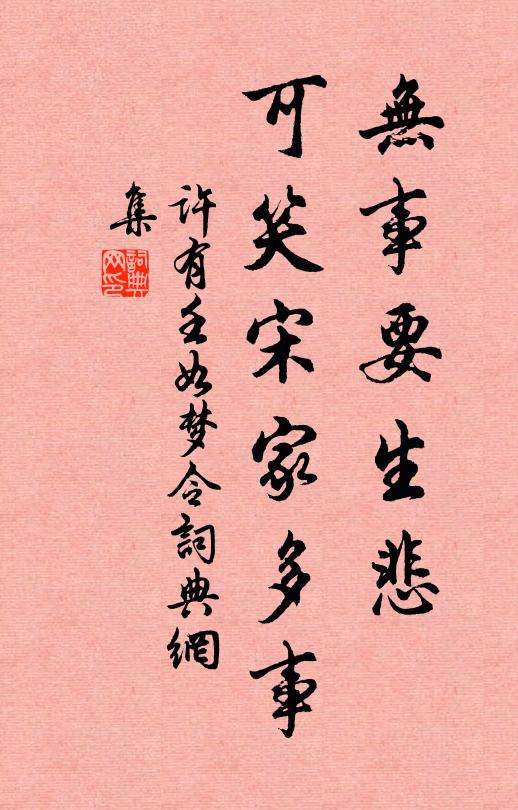 無事要生悲
可笑宋家多事
許有壬如梦令詞典網
集
詞典
网印